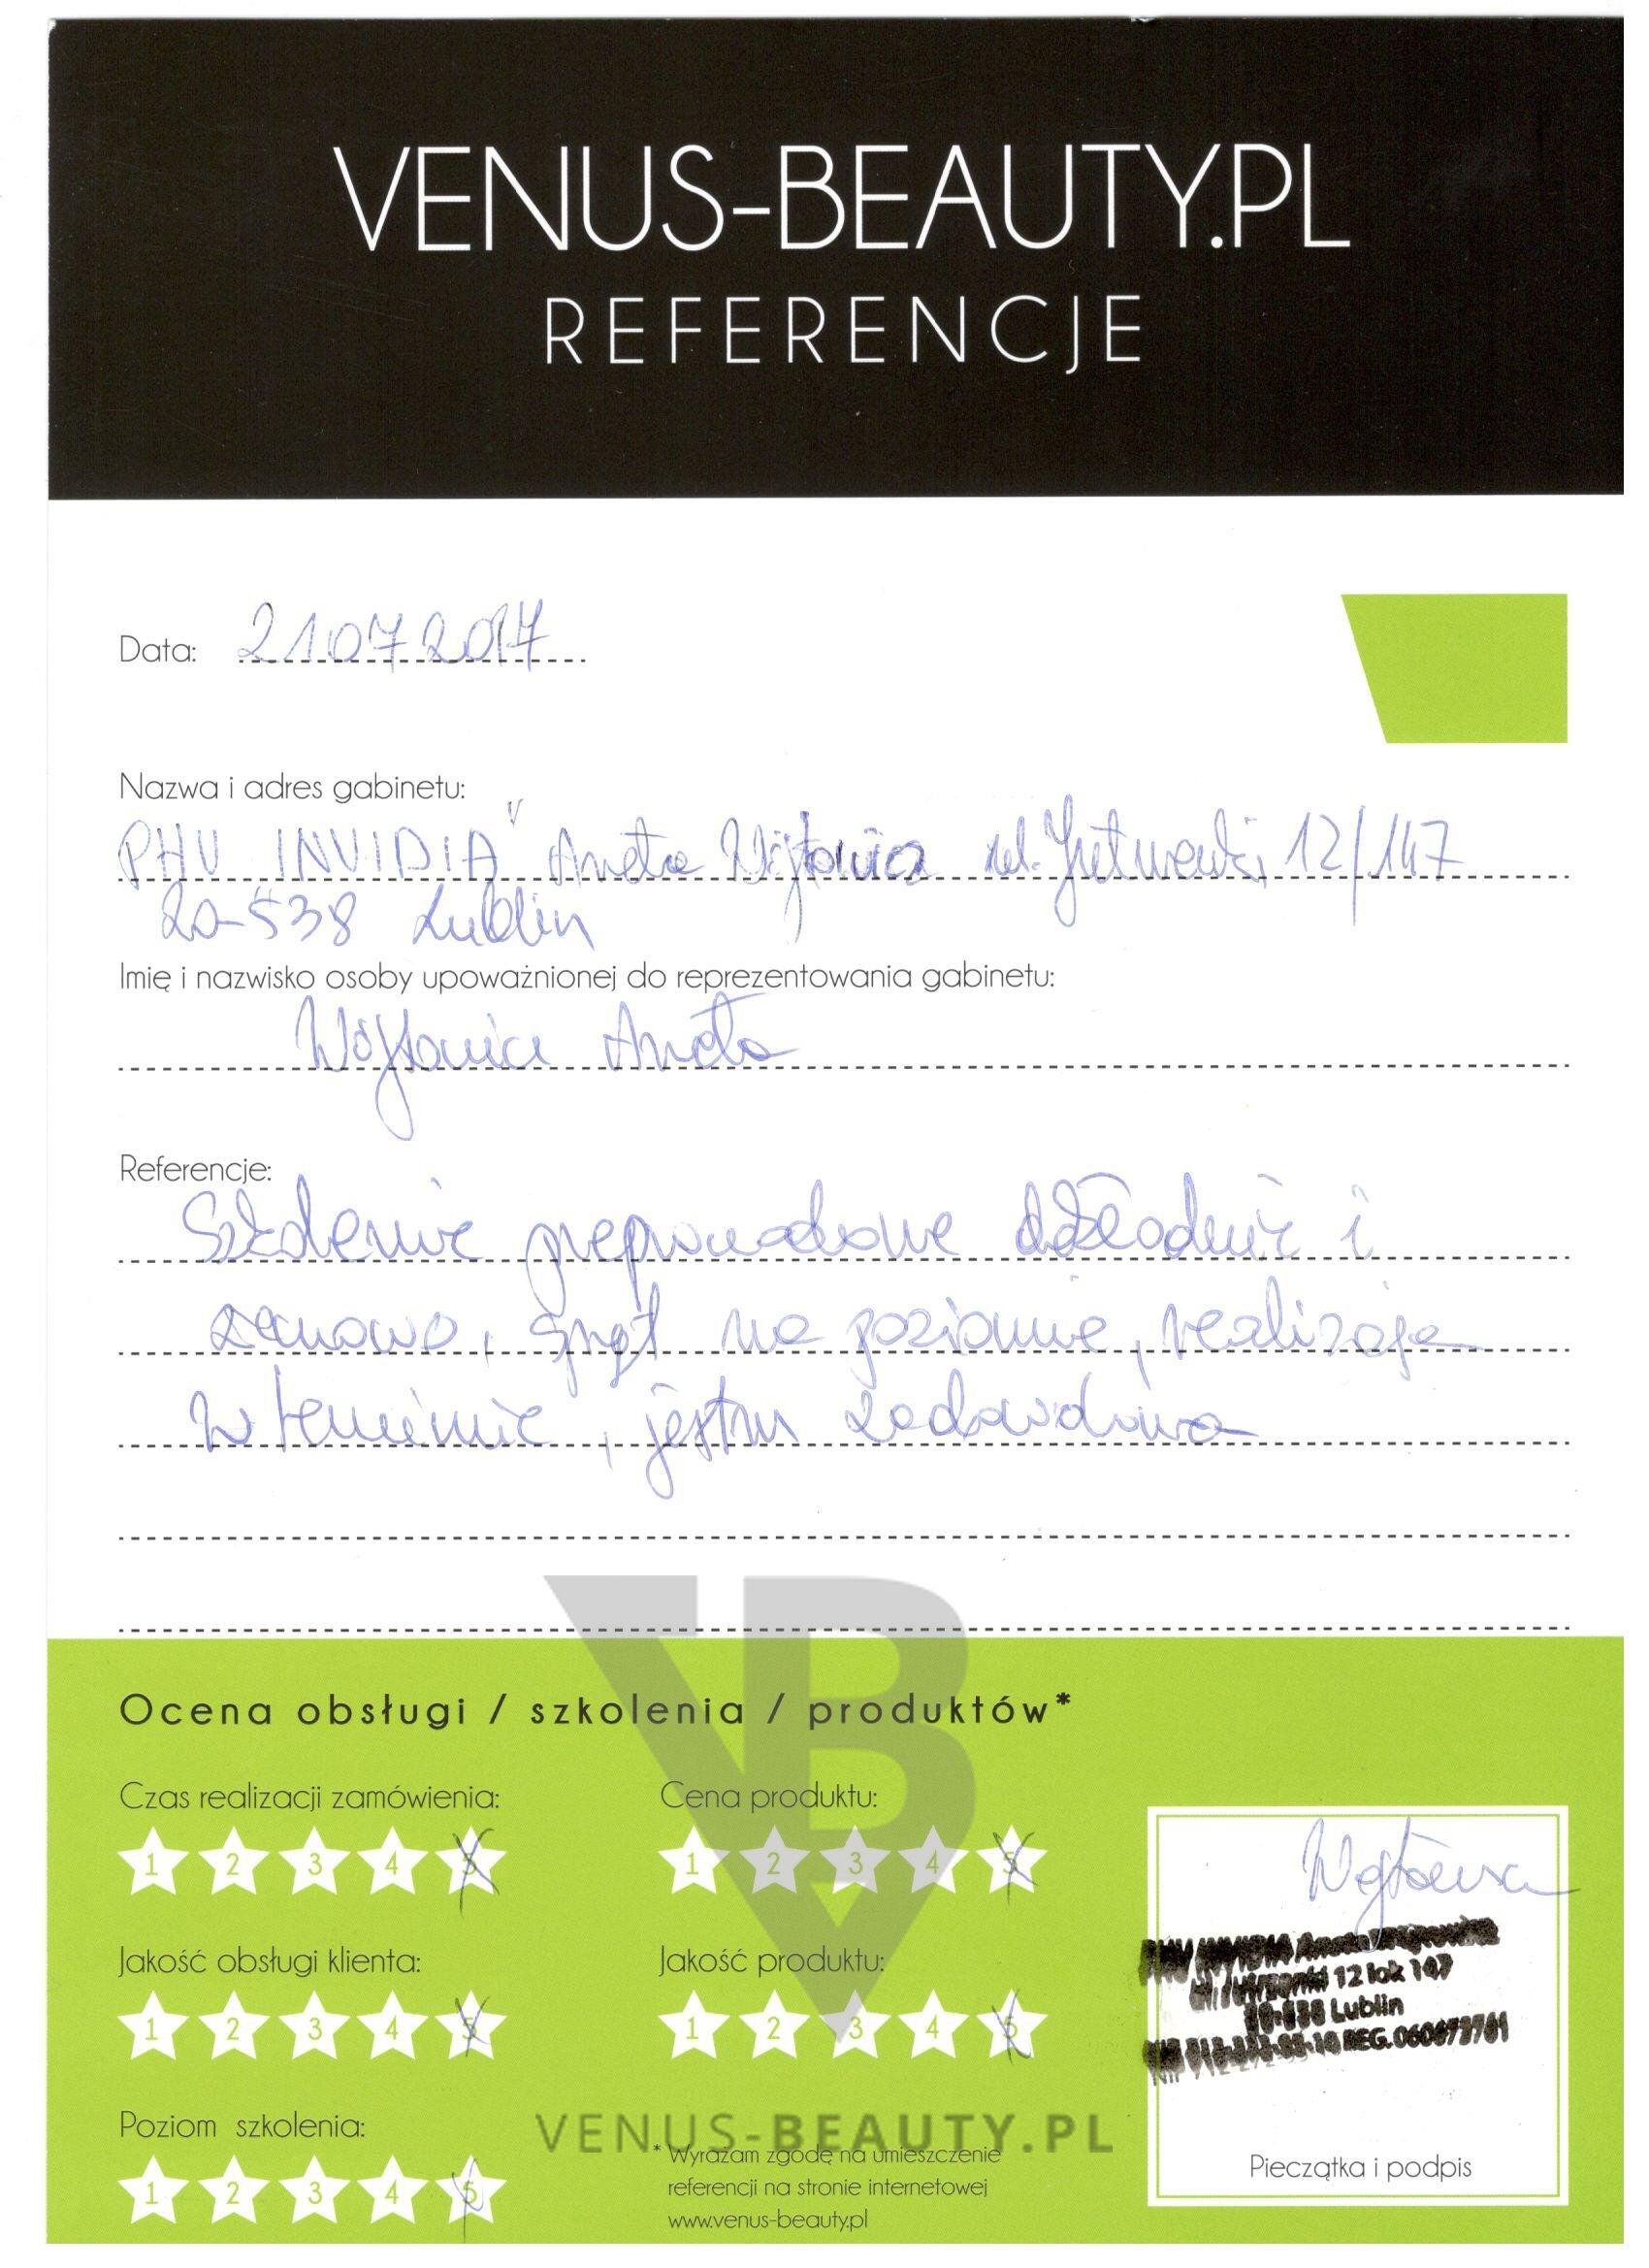 VENUS-BEAUTY.PL
REFERENCJE
Data: 21072017
Nazwa i adres gabinetu:
PHU INVIDIA" Aneta Wójtowicz ul. 12/147
20-538 Lublin
Imię i nazwisko osoby upoważnionej do reprezentowania gabinetu:
Wójtowicz Aneta
Referencje:
Szkolenie dokładnie i
sprzęt na poziomie, realizacja
w terminie, jestem zadowolona
Ocena obsługi / szkolenia / produktów*
Czas realizacji zamówienia: Cena produktu:
1 2 3 4 5 1 2 3 4 5
Jakość obsługi klienta: Jakość produktu:
1 2 3 4 5 1 2 3 4 5
12 lok 147
Lublin
REG.
Poziom szkolenia:
1 2 3 4 5
VENUS-BEAUTY.PL
* Wyrażam zgodę na umieszczenie
referencji na stronie internetowej
www.venus-beauty.pl
Pieczątka i podpis
VB